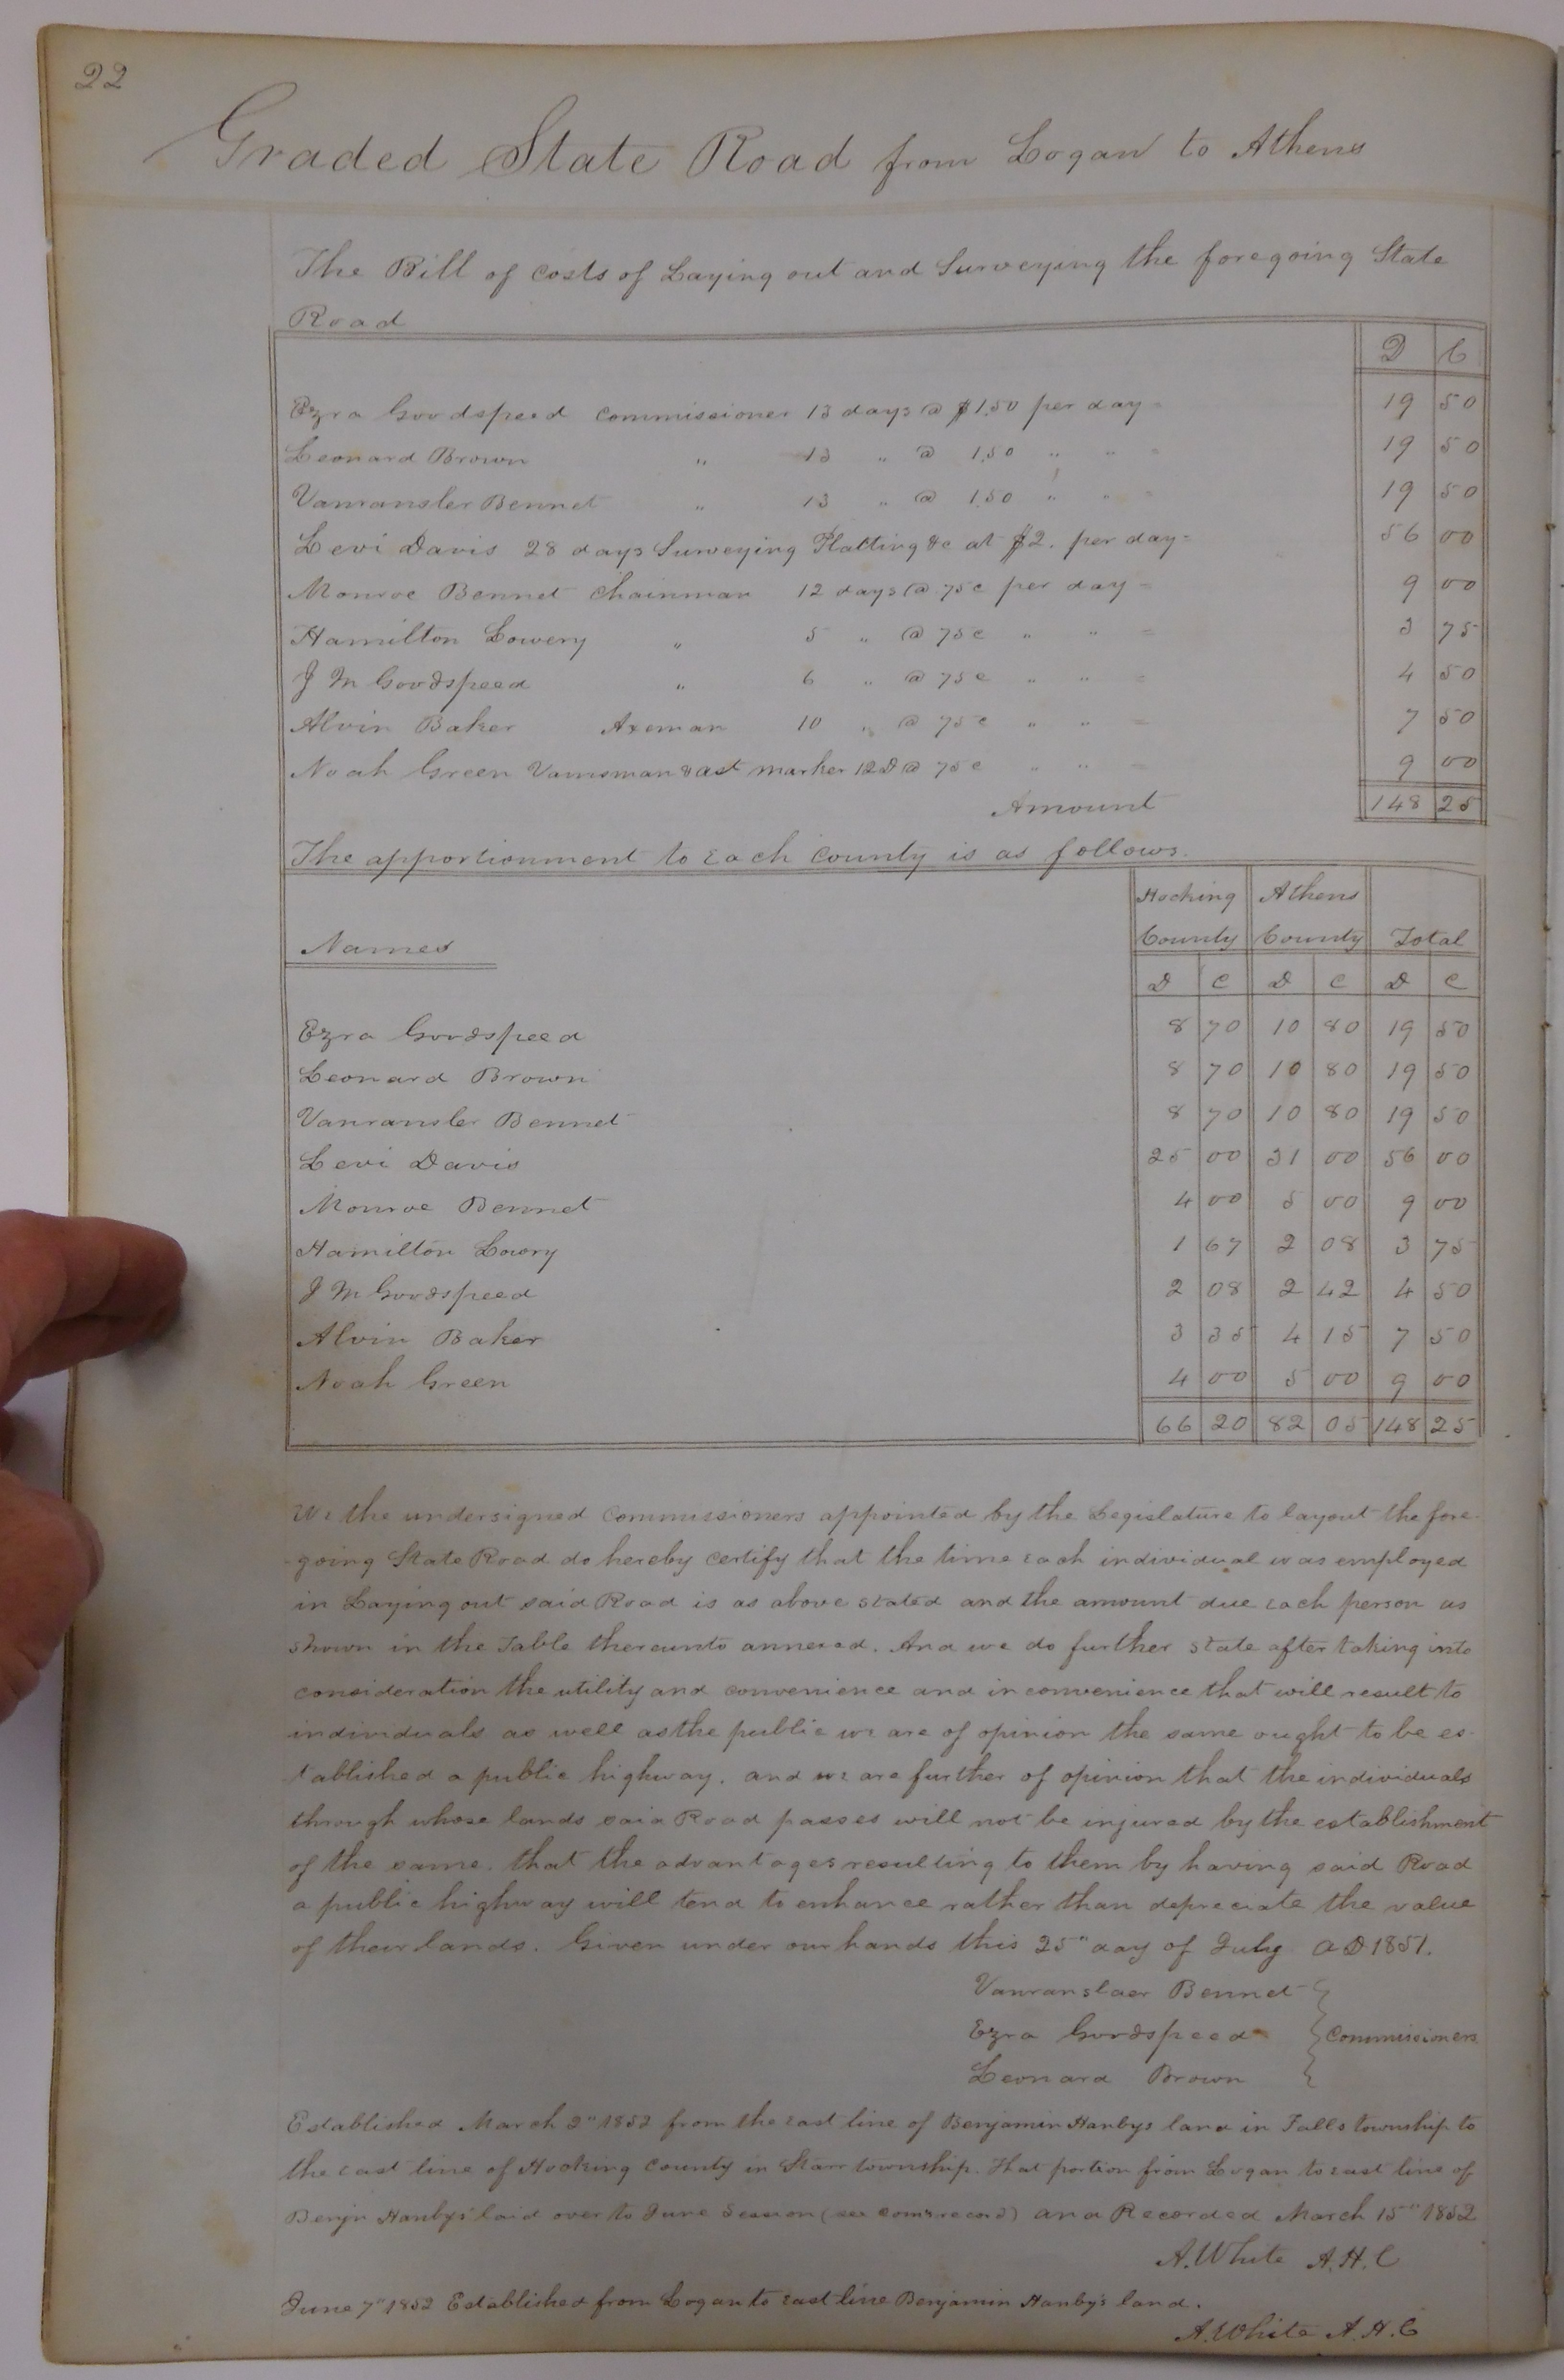 22
Graded State Road from Logan to Athens
The Bill of costs of Laying out and Surveying the foregoing State
Road
D C
Ezra Goodspeed commissioner 13 days @ $1.50 per day = 19 50
Leonard Brown " 13 " @ 1.50 " " = 19 50
Vanransler Bennet " 13 " @ 1.50 " " = 19 50
Levi Davis 28 days Surveying Platting &c at $2. per day = 56 00
Monroe Bennet Chainman 12 days @ 75c per day = 9 00
Hamilton Lowery " 5 " @ 75c " " = 3 75
J M Goodspeed " 6 " @ 75c " " = 4 50
Alvin Baker Axeman 10 " @ 75c " " = 7 50
Noah Green Vaneman & ast marker 12 D @ 75c " " = 9 00
Amount 148 25
The apportionment to Each County is as follows.
Hocking Athens
Names County County Total
D C D C D C
Ezra Goodspeed 8 70 10 80 19 50
Leonard Brown 8 70 10 80 19 50
Vanransler Bennet 8 70 10 80 19 50
Levi Davis 25 00 31 00 56 00
Monroe Bennet 4 00 5 00 9 00
Hamilton Lowry 1 67 2 08 3 75
J M Goodspeed 2 08 2 42 4 50
Alvin Baker 3 35 4 15 7 50
Noah Green 4 00 5 00 9 00
66 20 82 05 148 25
We the undersigned Commissioners appointed by the Legislature to layout the fore-
going State Road do hereby certify that the time each individual was employed
in Laying out said Road is as above stated and the amount due each person as
shown in the Table thereunto annexed. And we do further state after taking into
consideration the utility and convenience and inconvenience that will result to
individuals as well as the public we are of opinion the same ought to be es-
tablished a public highway. and we are further of opinion that the individuals
through whose lands said Road passes will not be injured by the establishment
of the same. that the advantages resulting to them by having said Road
a public highway will tend to enhance rather than depreciate the value
of their lands. Given under our hands this 25" day of July A D 1851.
Vanranslaer Bennet
Ezra Goodspeed Commissioners
Leonard Brown
Established March 2" 1852 from the east line of Benjamin Hanbys land in Falls township to
the east line of Hocking County in Starr township. That portion from Logan to east line of
Benjn Hanbys laid over to June Session (see coms record) and Recorded March 15" 1852
A. White A.H.C
June 7" 1852 Established from Logan to east line Benjamin Hanby's land.
A. White A.H.C